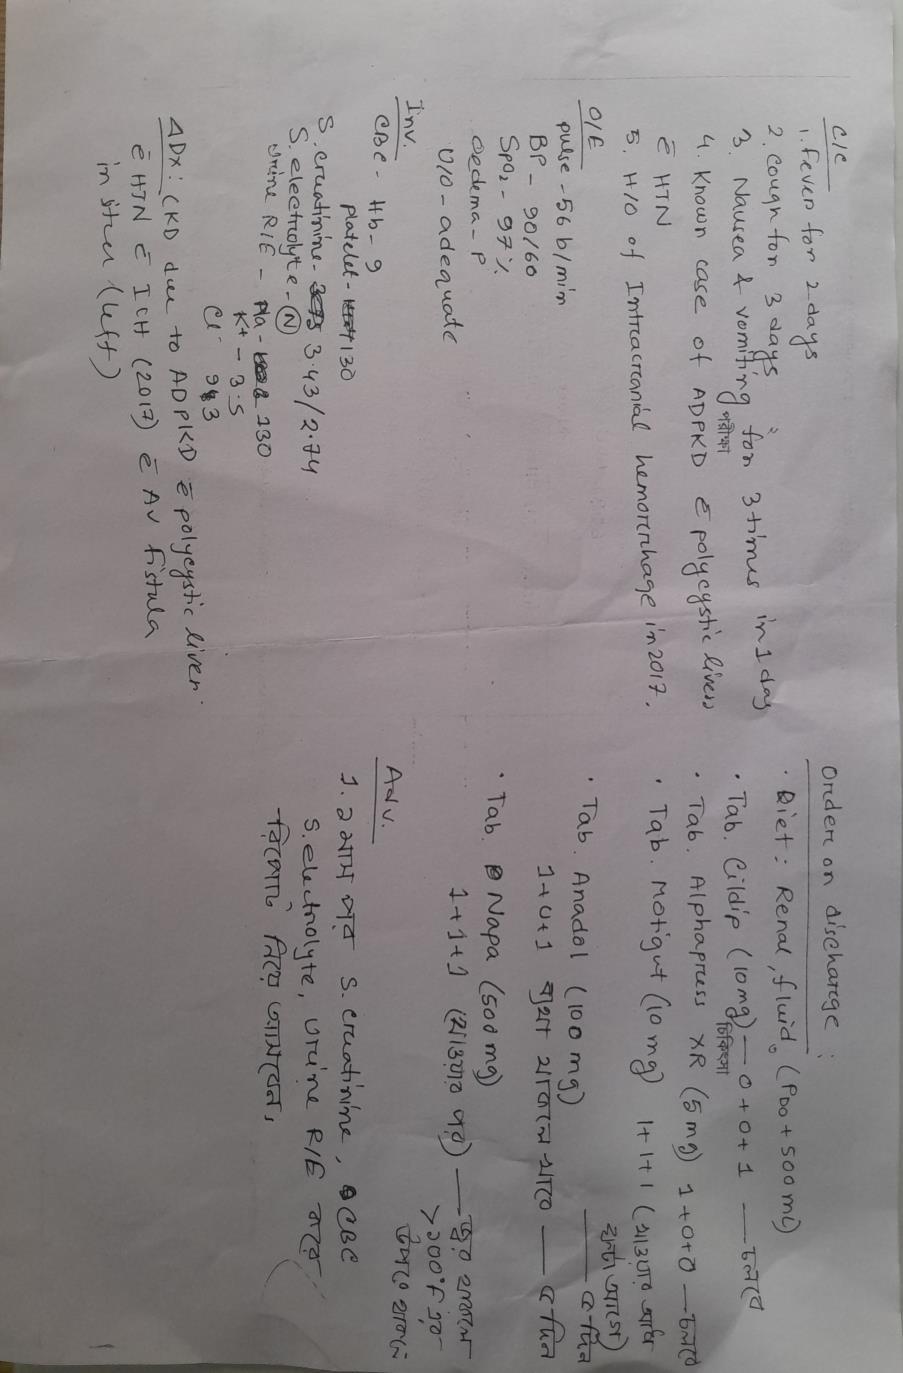 C/C
1. Fever for 2 days
2. Cough for 3 days
3. Nausea & vomiting for 3 times in 1 day
4. Known case of ADPKD c̄ polycystic liver
c̄ HTN
5. H/O of Intracranial hemorrhage in 2017.
O/E
pulse - 56 b/min
BP - 90/60
SpO₂ - 97%
Oedema - P
U/O - adequate
Inv.
CBC - Hb - 9
Platelet - 130
S. creatinine - 3.43/2.74
S. electrolyte - (N)
Urine R/E - Na - 130
K+ - 3.5
Cl⁻ 93
ADx: CKD due to ADPKD c̄ polycystic liver
c̄ HTN c̄ ICH (2017) c̄ AV fistula
in situ (left)
পরীক্ষা
Order on discharge:
• Diet: Renal, fluid (PDO + 500 ml)
• Tab. Cildip (10mg) — 0 + 0 + 1 — চলবে
চিকিৎসা
• Tab. Alphapress XR (5 mg) 1+0+0 — চলবে
• Tab. Motigut (10 mg) 1+1+1 (খাওয়ার আধা
ঘন্টা আগে)
— ৫ দিন
• Tab. Anadol (100 mg)
1+0+1 ব্যথা থাকলে — ৫ দিন
• Tab. Napa (500 mg)
1+1+1 (খাওয়ার পর) — জ্বর
>১০০°F
উপরে থাকলে
Adv.
1. পর S. creatinine, CBC
S. electrolyte, Urine R/E করে
রিপোর্ট নিয়ে আসবেন।